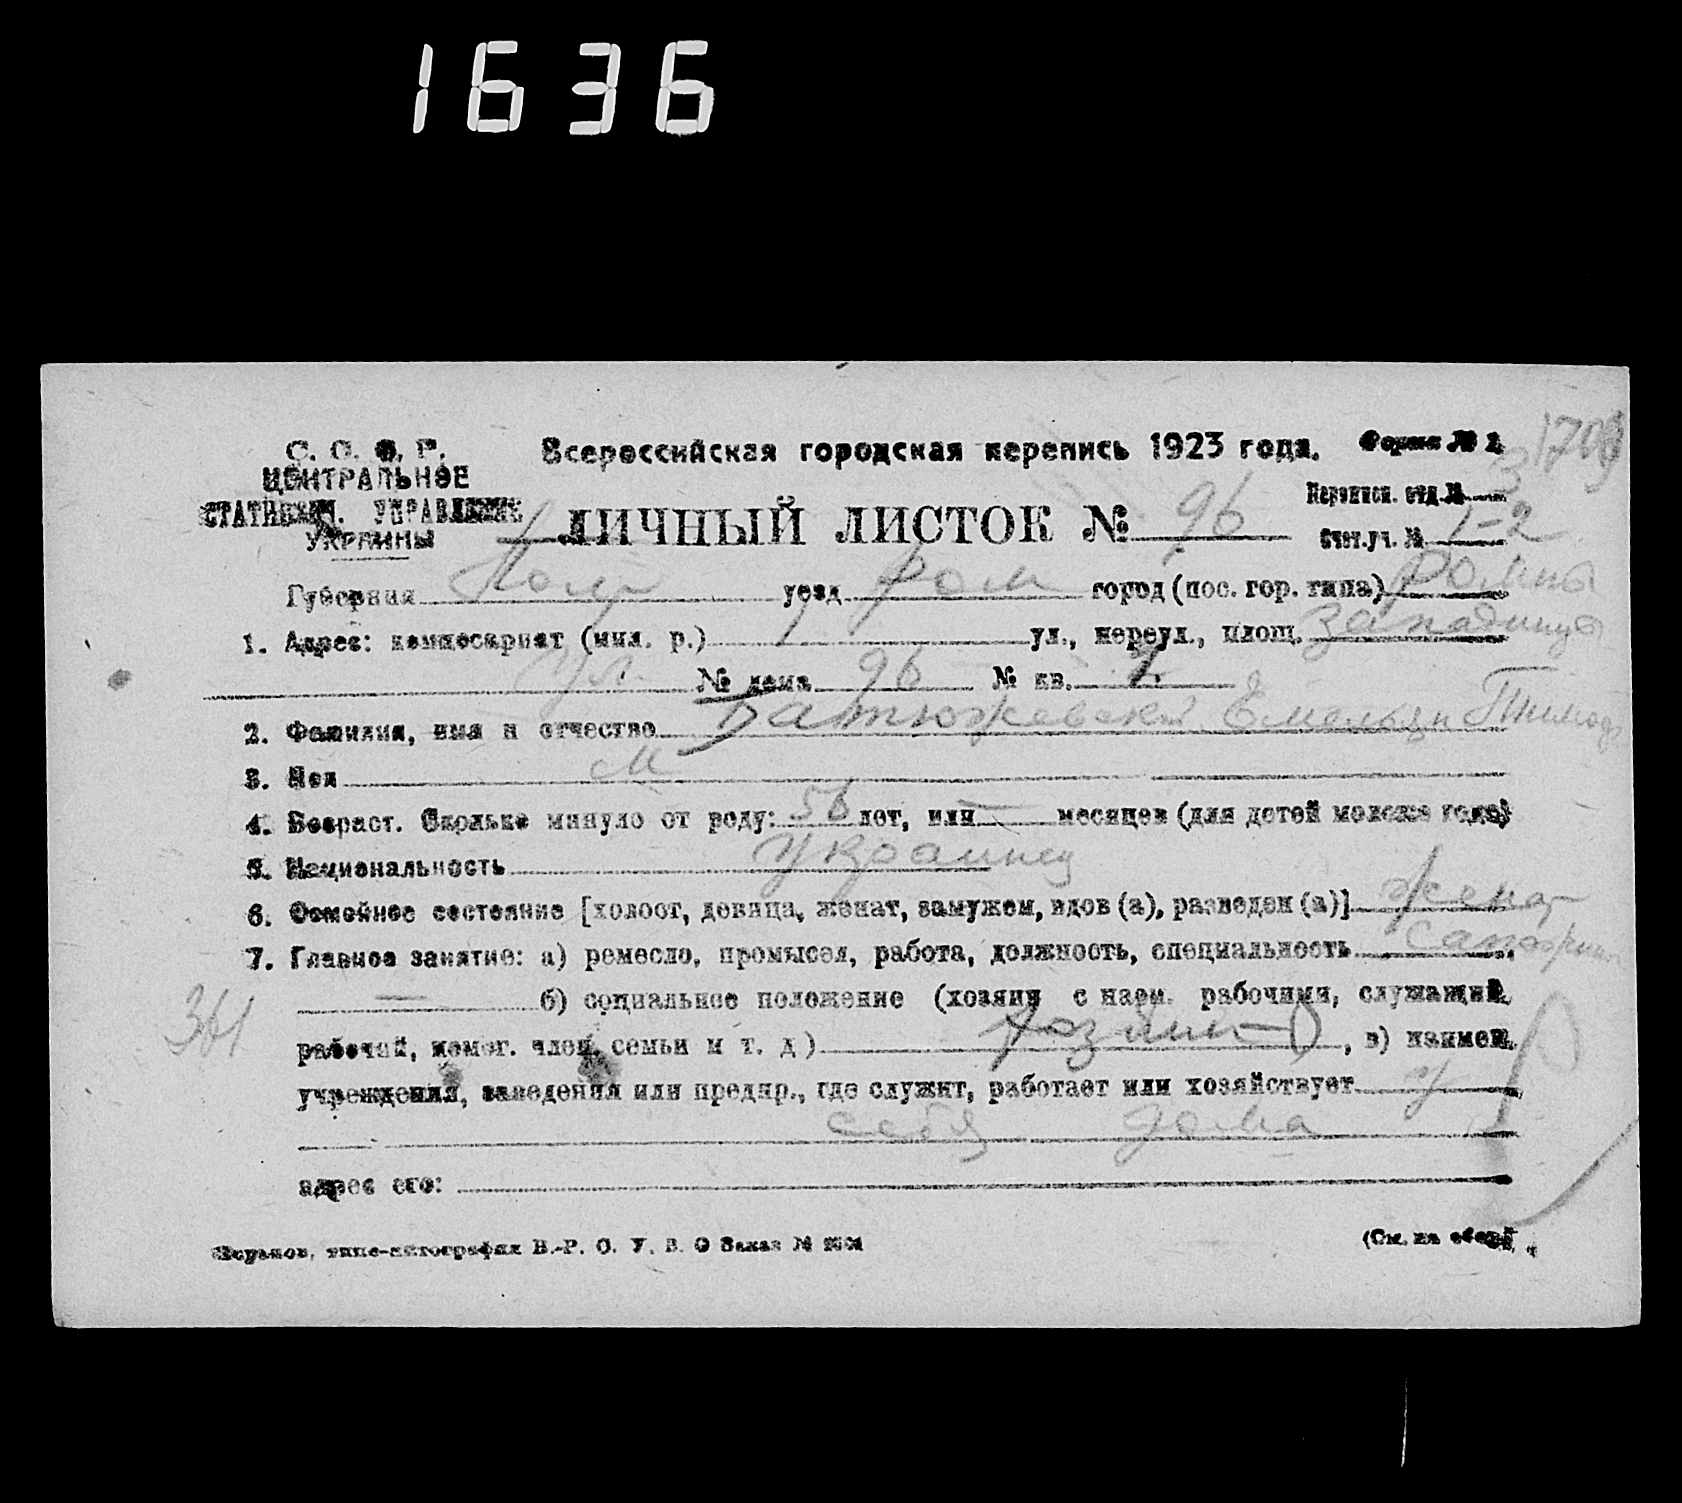 1636
С. С. С. Р.
ЦЕНТРАЛЬНОЕ
СТАТИСТИЧ. УПРАВЛЕНИЕ
УКРАИНЫ
Всероссийская городская перепись 1923 года.
Форма № 2
1709
Переписн. отд. № 3
Счет. уч. № 1-2
ЛИЧНЫЙ ЛИСТОК № 96
Губерния Полт уезд Ром город (пос. гор. типа) Ромны
1. Адрес: комиссариат (мил. р.) 1 ул., переул., площ. Западинцы
ул. № дома 96 № кв. 1.
2. Фамилия, имя и отчество Батюжевский Емельян Тимоф
3. Пол М
4. Возраст. Сколько минуло от роду: 56 лет, или — месяцев (для детей моложе года)
5. Национальность Украинец
6. Семейное состояние [холост, девица, женат, замужем, вдов (а), разведен (а)] женат
7. Главное занятие: а) ремесло, промысел, работа, должность, специальность сапожник
— б) социальное положение (хозяин с наем. рабочими, служащий,
361
рабочий, помог. член семьи и т. д) хозяин-О, в) наимен.
учреждения, заведения или предпр., где служит, работает или хозяйствует у
себя дома
адрес его:
типо-литография В.-Р. О. У. В. О Заказ №
(См. на обор.)